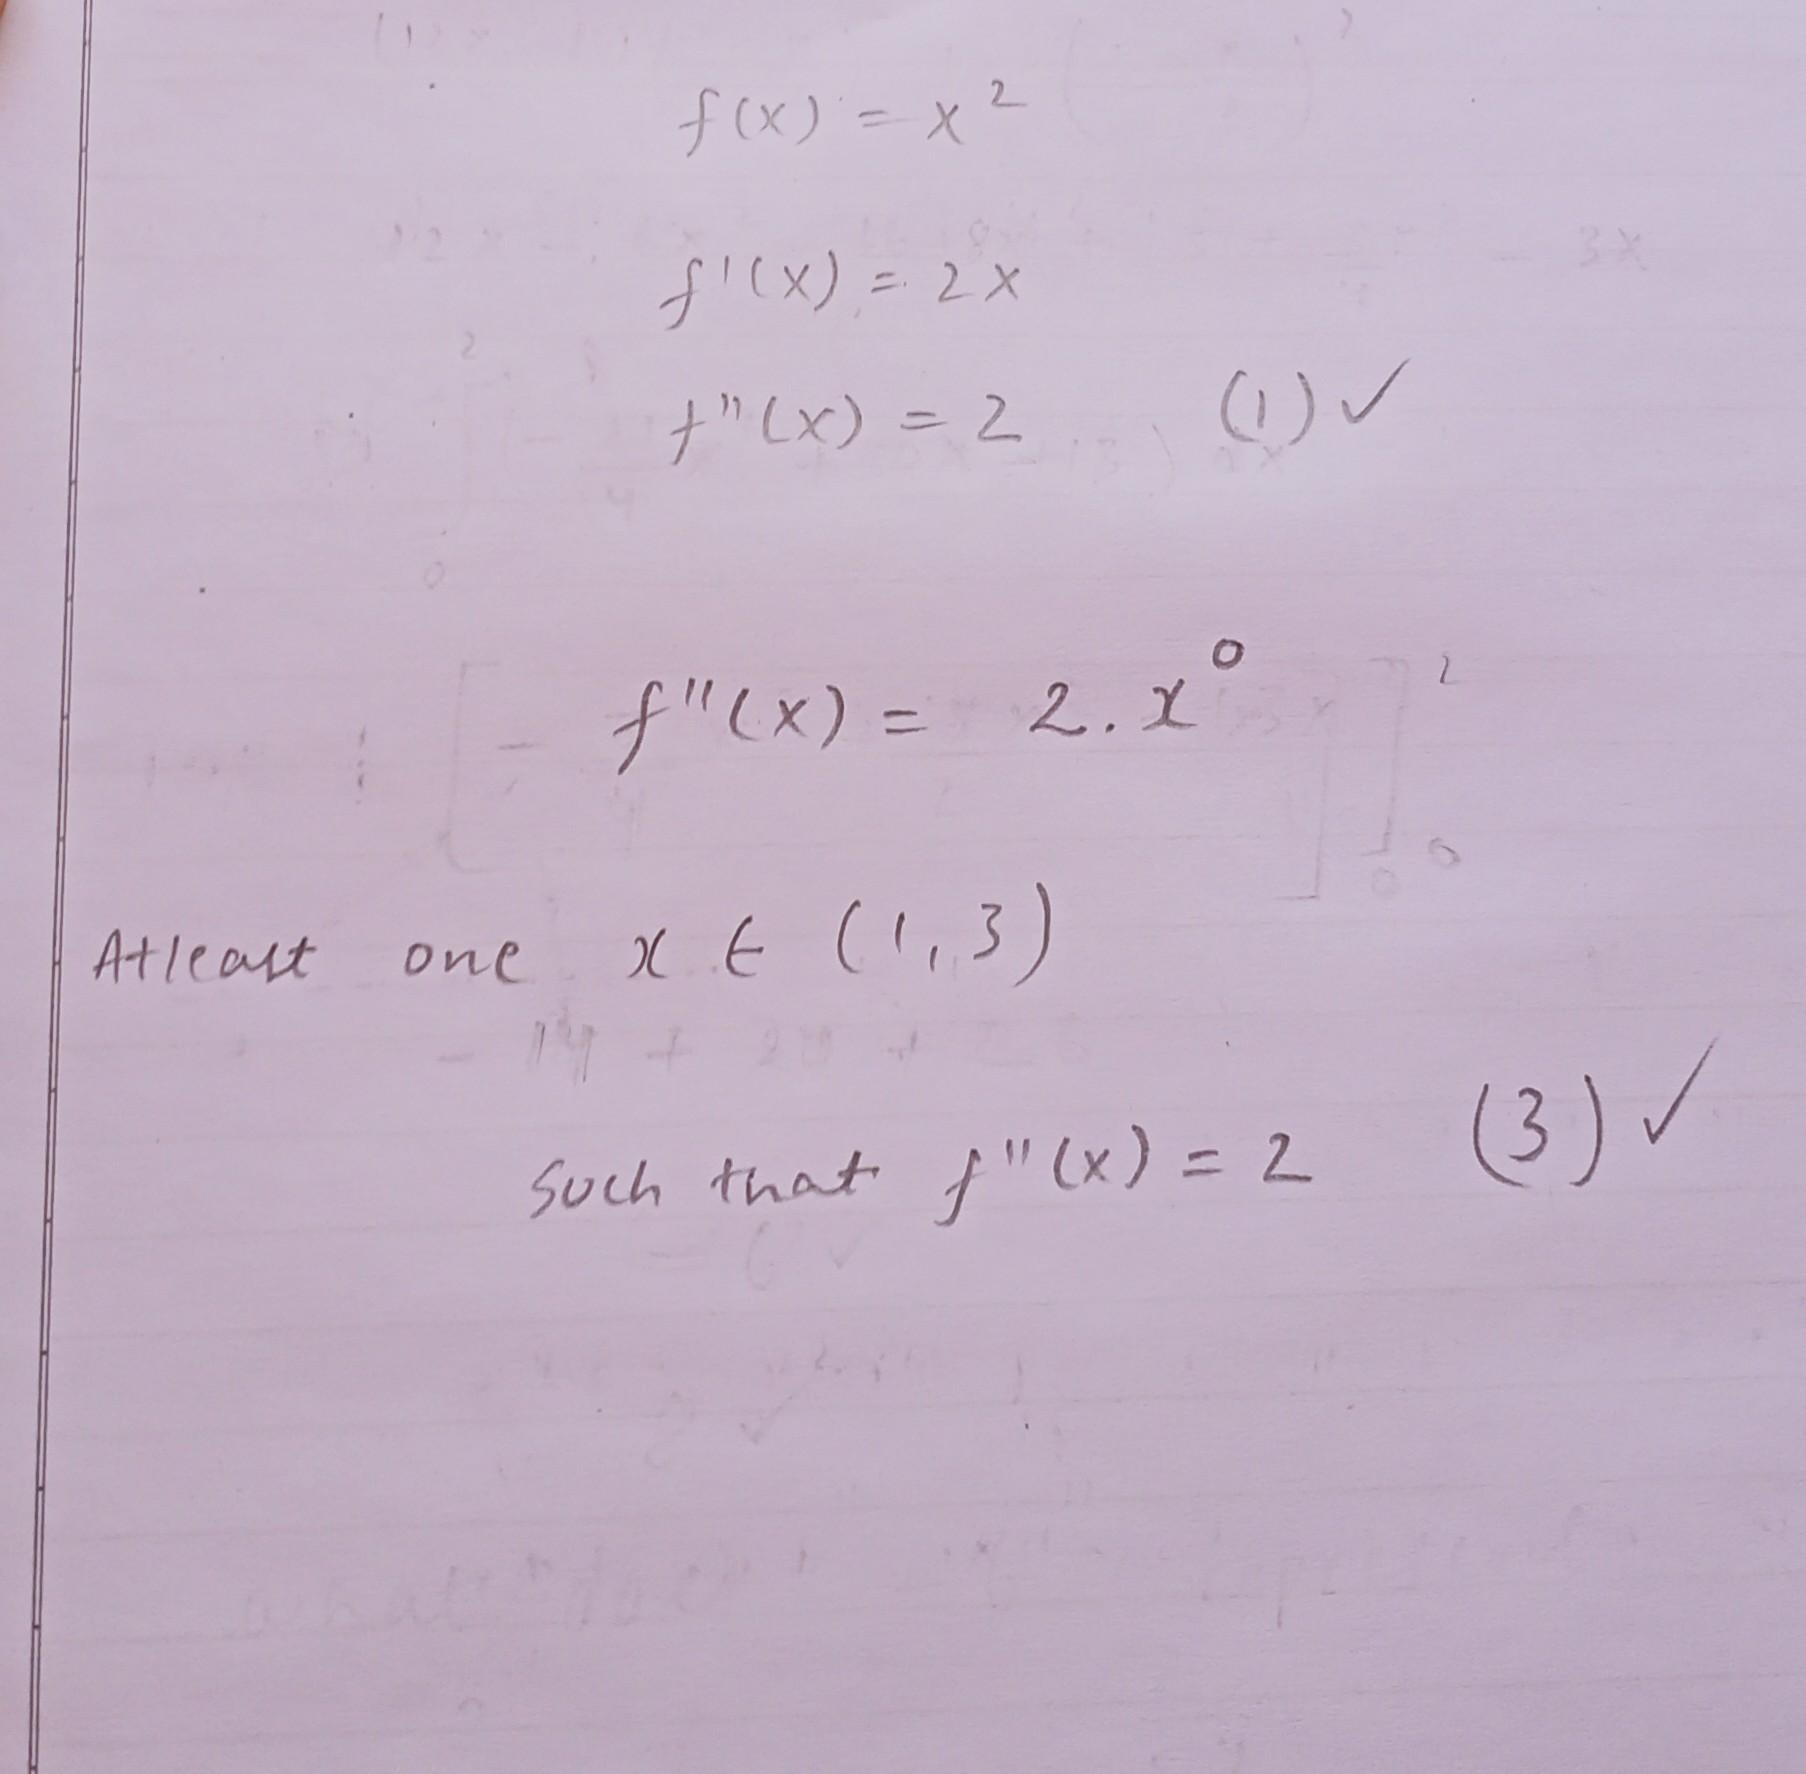 f(x) = x²
f'(x) = 2x
f"(x) = 2 (1) ✓
f"(x) = 2.x⁰
Atleast one x ∈ (1,3)
such that f"(x) = 2 (3) ✓